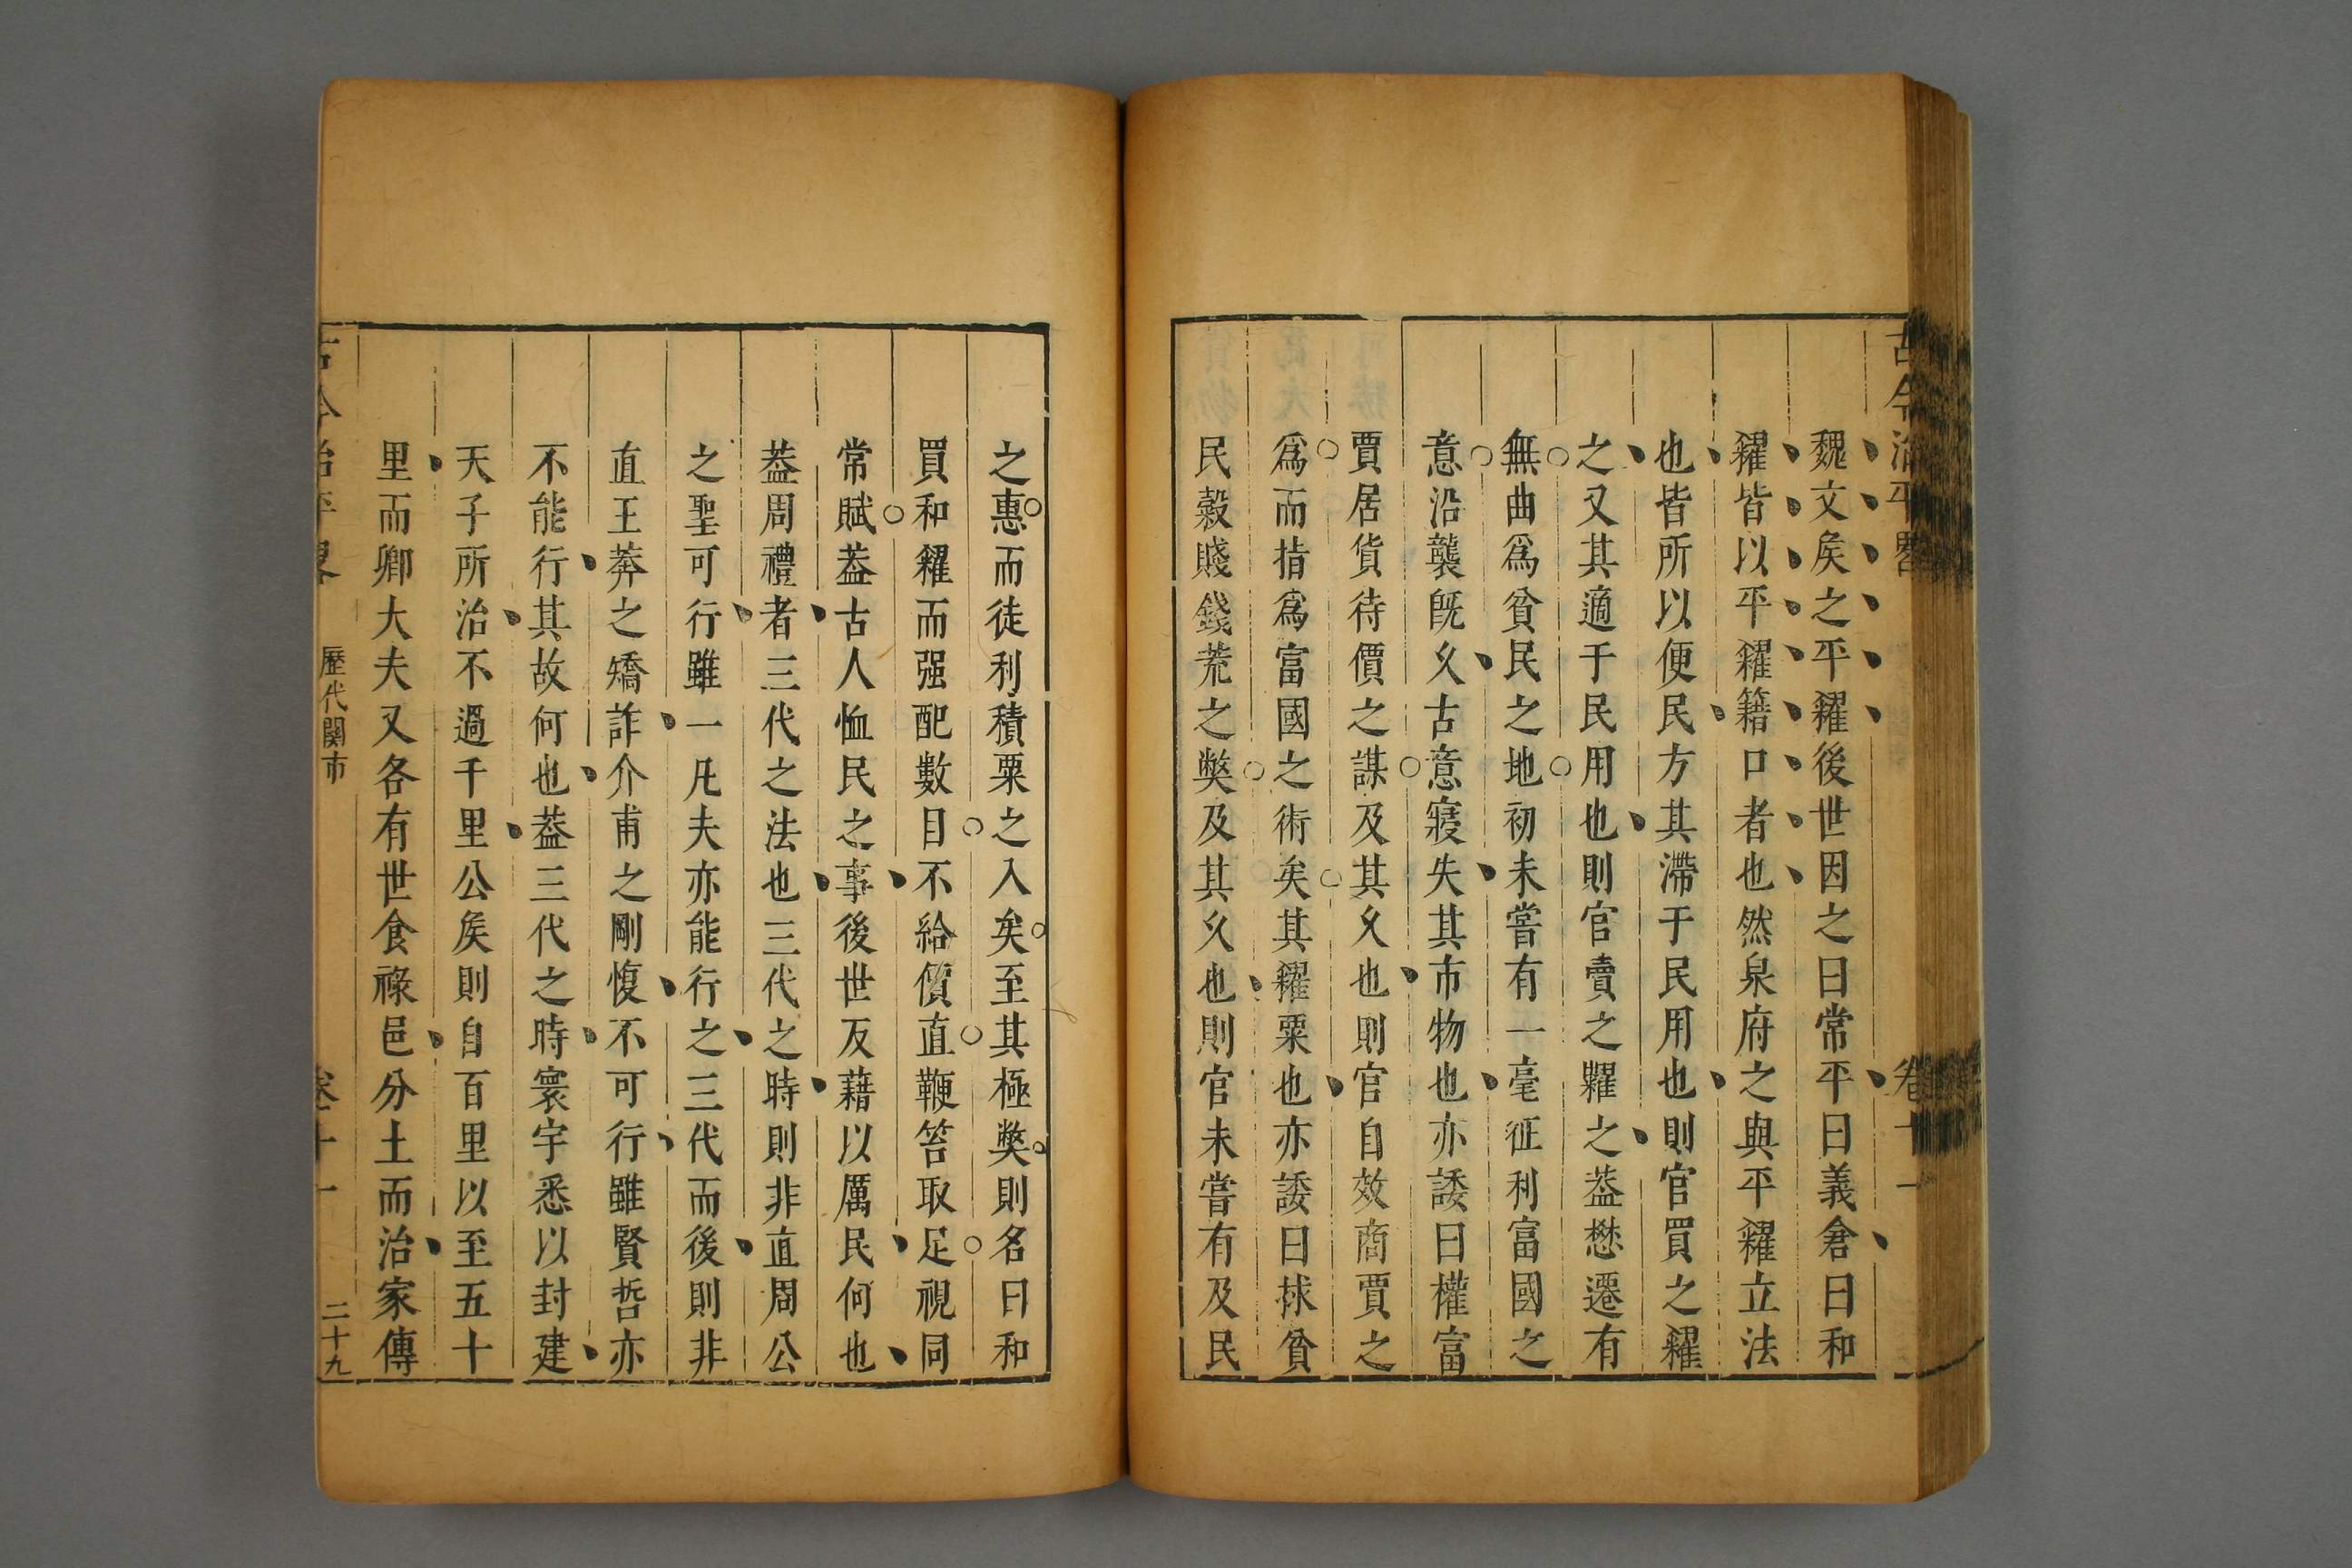 古今治平畧 卷十一
魏文矦之平糴後世因之曰常平曰義倉曰和
糴皆以平糴籍口者也然泉府之與平糴立法
也皆所以便民方其滯于民用也則官買之糴
之又其適于民用也則官賣之糶之葢懋遷有
無曲爲貧民之地初未嘗有一毫征利富國之
意沿襲旣乆古意寖失其市物也亦諉曰權富
賈居貨待價之謀及其乆也則官自效商賈之
爲而指爲富國之術矣其糴粟也亦諉曰捄貧
民穀賤錢荒之獘及其乆也則官未嘗有及民
之惠而徒利積粟之入矣至其極獘則名曰和
買和糴而强配數目不給價直鞭笞取足視同
常賦葢古人恤民之事後世反藉以厲民何也
葢周禮者三代之法也三代之時則非直周公
之聖可行雖一凡夫亦能行之三代而後則非
直王莽之矯詐介甫之剛愎不可行雖賢哲亦
不能行其故何也葢三代之時寰宇悉以封建
天子所治不過千里公矦則自百里以至五十
里而卿大夫又各有世食祿邑分土而治家傳
古今治平畧 歷代關市 卷十一 二十九